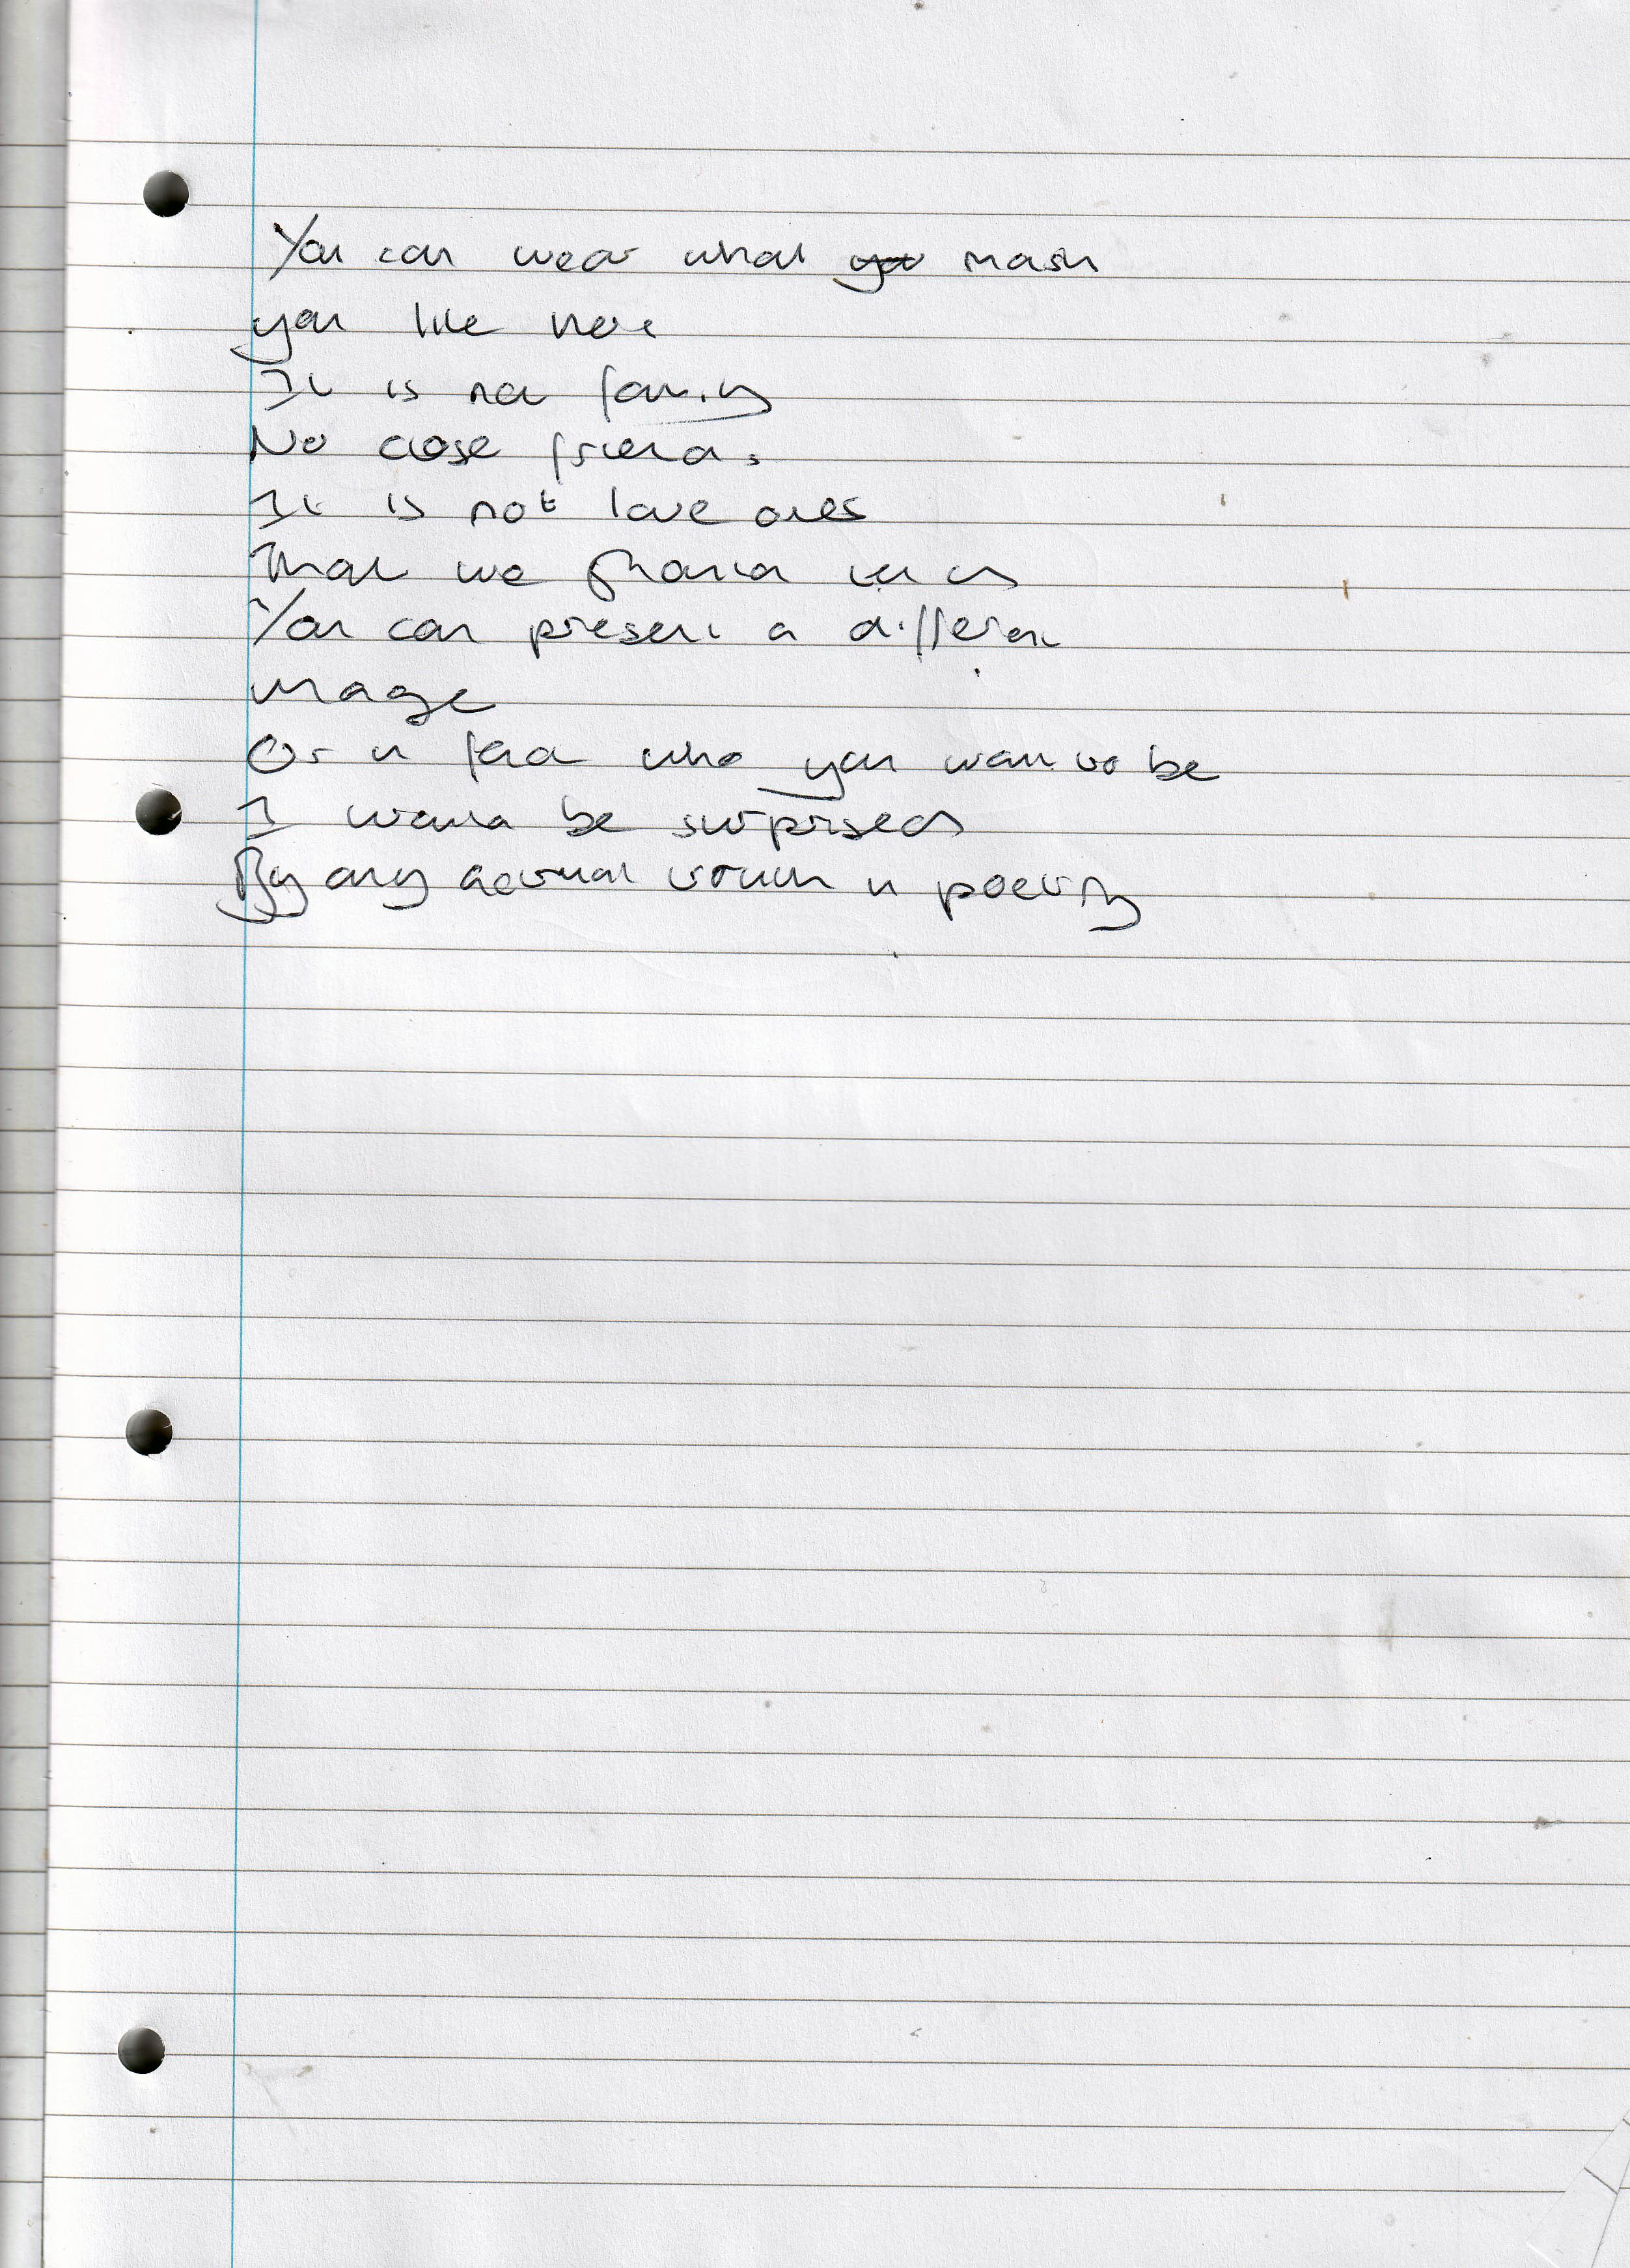 You can wear what mask
you like here
It is not family
No close friends
It is not love ones
That we
You can present a different
image
Or in fact who you want to be
I wanna be surprised
By any actual truth in poetry